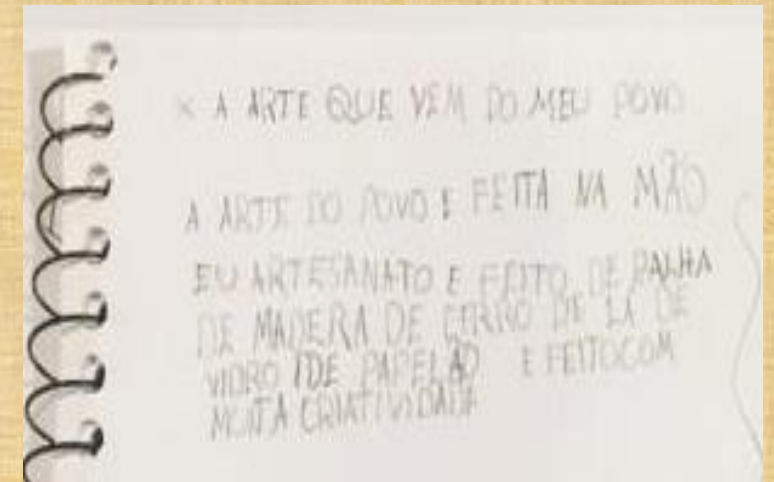 X A ARTE QUE VEM DO MEU POVO
A ARTE DO POVO E FEITA NA MÃO
EU ARTESANATO E FEITO DE PALHA
DE MADERA DE FERRO DE LÃ DE
VIDRO IDE PAPELÃO E FEITOCOM
MUITA CRIATIVIDADE